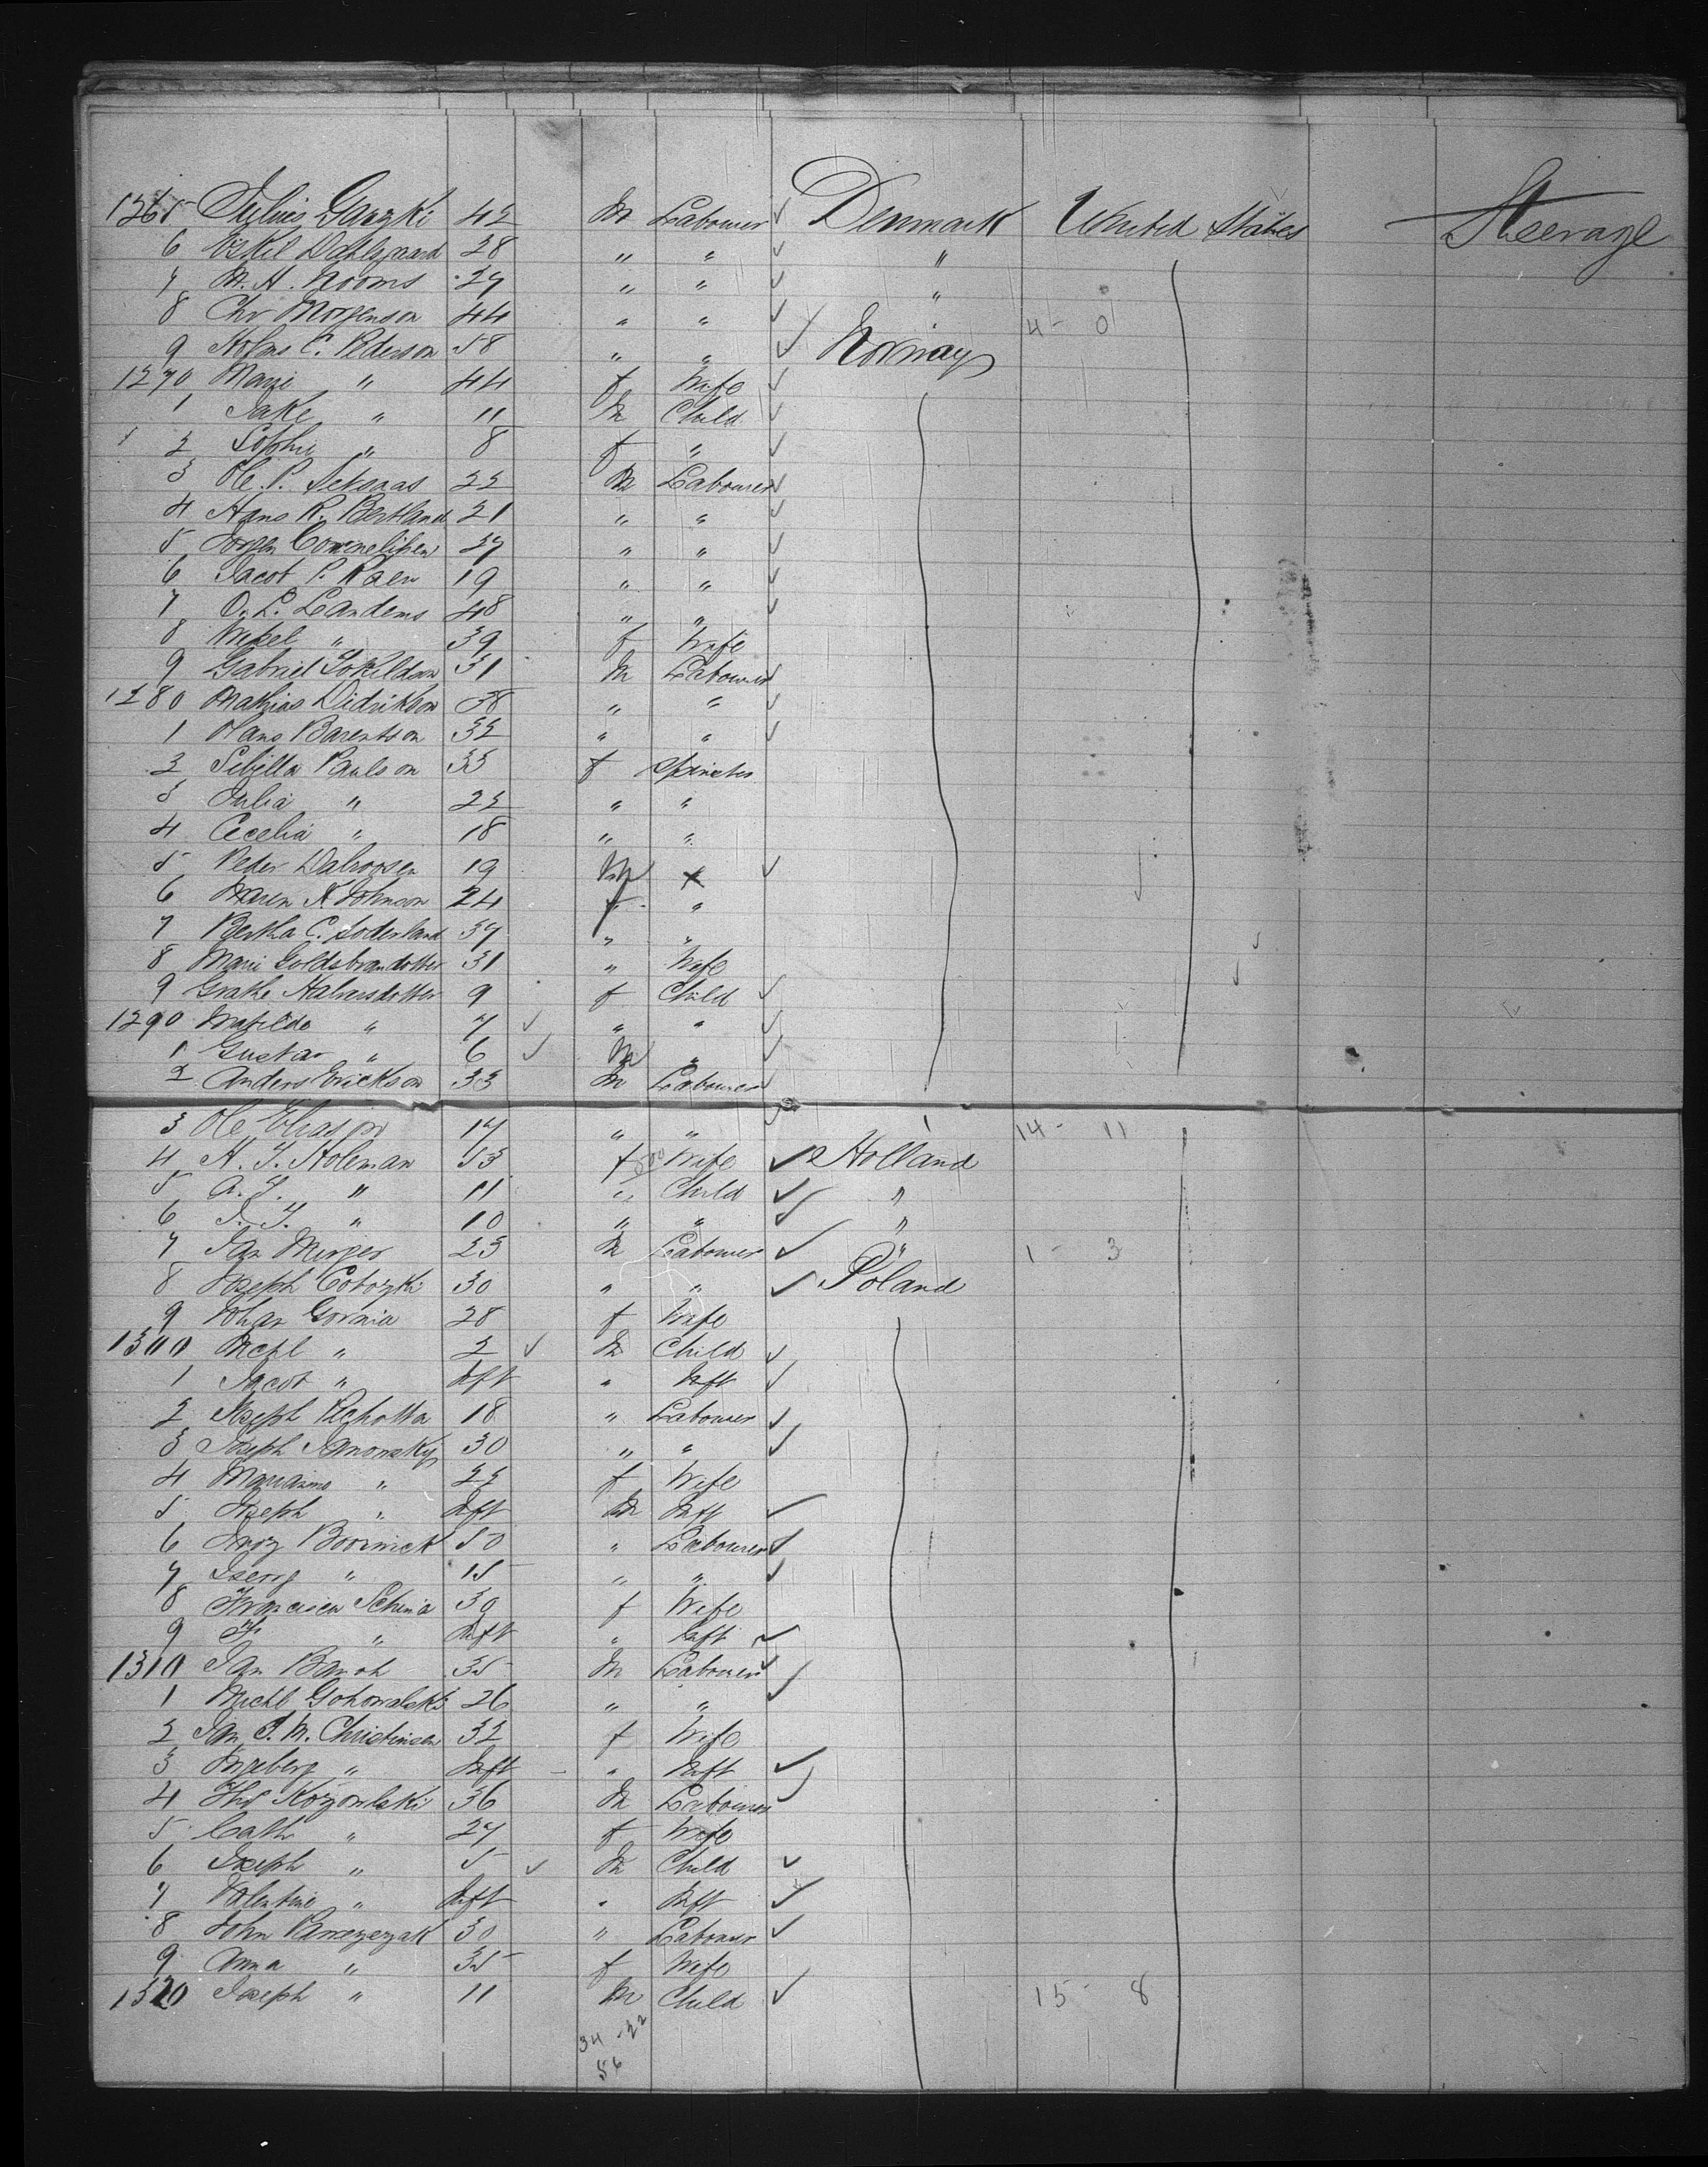 1265 Julius Garzki 42 M Labourer Denmark United States Steerage
6 Eskil Dahlgaard 28 " " "
7 M. H. Nooms 27 " " "
8 Chr Morgenson 44 " " " 4 - 0
9 Holms C. Pederson 58 " " Norway
1270 Marie " 44 f Wife
1 Jake " 11 M Child
2 Sophie " 8 f "
3 Ole P. 22 M Labourer
4 Hans R. Bertland 21 " "
5 Jorgen Cornelisen 27 " "
6 Jacob P. Roen 19 " "
7 O. L. Landems 48 " "
8 " 39 f Wife
9 Gabriel 31 M Labourer
1280 Mathias Didrikson 38 " "
1 Hans Barentson 32 " "
2 Sibilla Paulson 33 f Spinster
3 Julia " 22 " "
4 Cecelia " 18 " "
5 Peder 19 M x
6 Maren K Johnson 24 f "
7 Bertha C. Soderland 37 " "
8 Marie Goldsbrandotter 31 " Wife
9 Grathe Halversdotter 9 f Child
1290 Matilda " 7 " "
1 Gustav " 6 M "
2 Anders Erickson 33 M Labourer
3 Ole Eliason 17 " " 14 - 11
4 H. J. Holeman 53 f Wife Holland
5 A. J. " 11 " Child "
6 J. J. " 10 " " "
7 Jan 23 M Labourer " 1 - 3
8 Joseph Cotozki 30 " " Poland
9 Johan Gornia 28 f Wife
1300 Michl " 2 M Child
1 Jacob " Inft " Inft
2 Joseph Pichotta 18 " Labourer
3 Joseph Janowsky 30 " "
4 Marianna " 22 f Wife
5 Joseph " Inft M Inft
6 50 " Labourer
7 " 15 " "
8 Francisca Schenia 30 f Wife
9 F " Inft " Inft
1310 Jan 35 M Labourer
1 Michl Gohowalski 26 " "
2 Jan J. M. Christinsen 32 f Wife
3 Ingeberg " Inft - " Inft
4 Ths Kozowlski 36 M Labourer
5 Cath " 27 f Wife
6 Joseph " 5 M Child
7 Valentine " Inft " Inft
8 John 30 " Labourer
9 Anna " 35 f Wife
1320 Joseph " 11 M Child 15 - 8
34 - 22
56